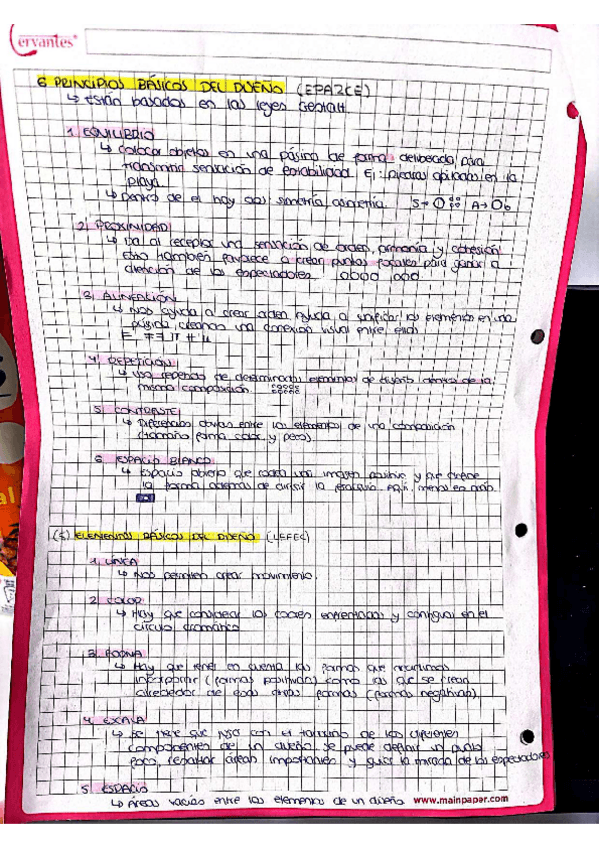 Cervantes
6 PRINCIPIOS BÁSICOS DEL DISEÑO (EPARCE)
↳ Están basados en las leyes Gestalt.
1. EQUILIBRIO
↳ colocar objetos en una página de forma deliberada para
transmitir sensación de estabilidad. Ej: piedras apiladas en la
playa.
↳ Dentro de el hay dos simetría asimetría. S→ A→
2. PROXIMIDAD
↳ Da al receptor una sensación de orden, armonía y cohesión
Esto también favorece a crear puntos focales para ganar a
atención de los espectadores.
3. ALINEACIÓN
↳ Nos ayuda a crear orden Ayuda a unificar los elementos en una
página, creamos una conexión visual entre ellos
4. REPETICIÓN
↳ Uso repetido de determinados elementos de diseño dentro de la
misma composición.
5. CONTRASTE
↳ Diferencias obvias entre los elementos de una composición
(tamaño forma color y peso).
6. ESPACIO BLANCO
↳ Espacio objeto que rodea una imagen positiva y que define
la forma además de dirigir la menos es más
(5) ELEMENTOS BÁSICOS DEL DISEÑO (LCFEE)
1. LÍNEA
↳ Nos permiten crear movimiento.
2. COLOR
↳ Hay que considerar los colores enfrentados y contiguos en el
círculo cromático
3. FORMA
↳ Hay que tener en cuenta las formas que
incorporar (formas positivas) como las que se crean
alrededor de dichas formas (formas negativas).
4. ESCALA
↳ Se tiene que con el tamaño de los diferentes
componentes de un diseño se puede definir un punto
foco, resaltar áreas importantes y guiar la mirada de los espectadores
5. ESPACIO
↳ Áreas vacías entre los elementos de un diseño
www.mainpaper.com